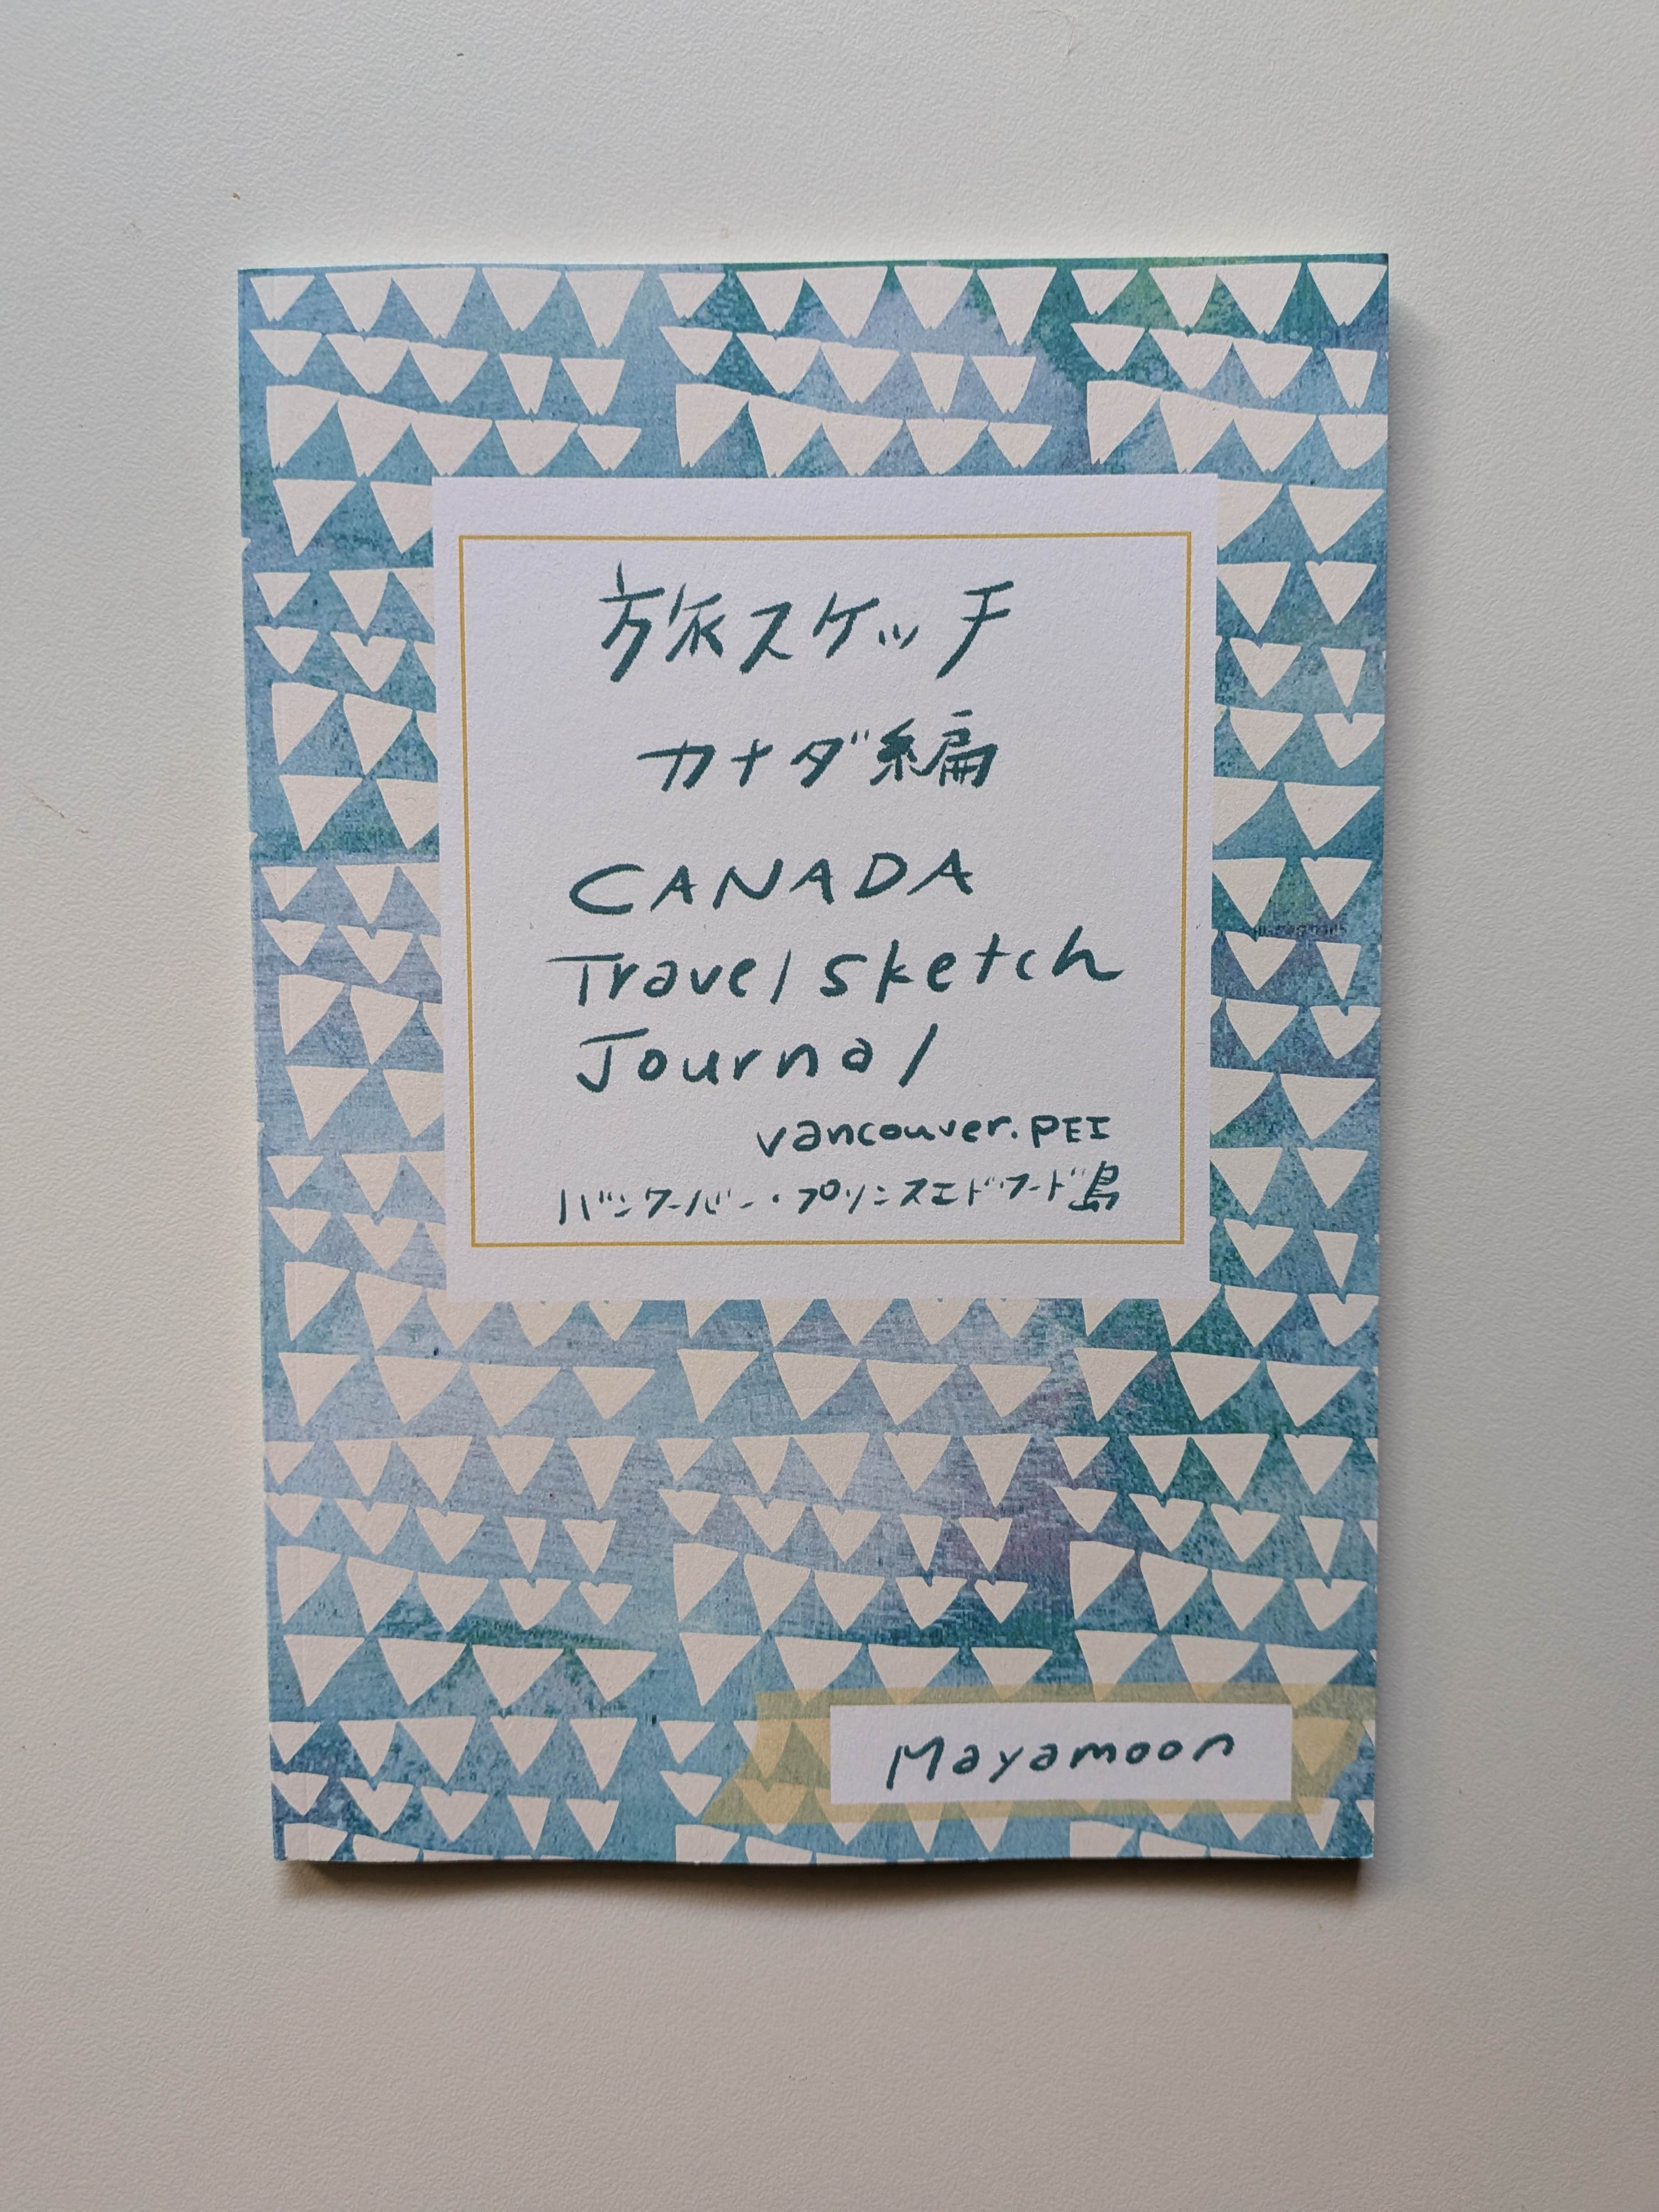 旅スケッチ
カナダ編
CANADA
Travel sketch
Journal
vancouver. PEI
バンクーバー・プリンスエドワード島
Mayamoon